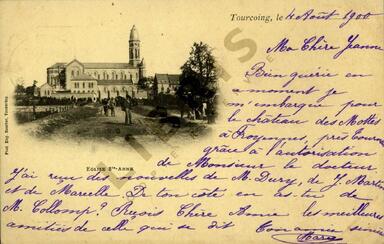 Tourcoing, le 4 Août 1900
Ma Chère Jeanne
Bien guérie en ce
moment je
m'embarque pour
le château des Mottes
à près Tournai
grâce à l'autorisation
de Monsieur le docteur
J'ai reçu des nouvelles de M. Dury, de J. Martin
et de Marcelle. De ton côté en as-tu de
M. Collomp? Reçois Chère Amie les meilleures
amitiés de celle qui se dit
EGLISE Ste-ANNE